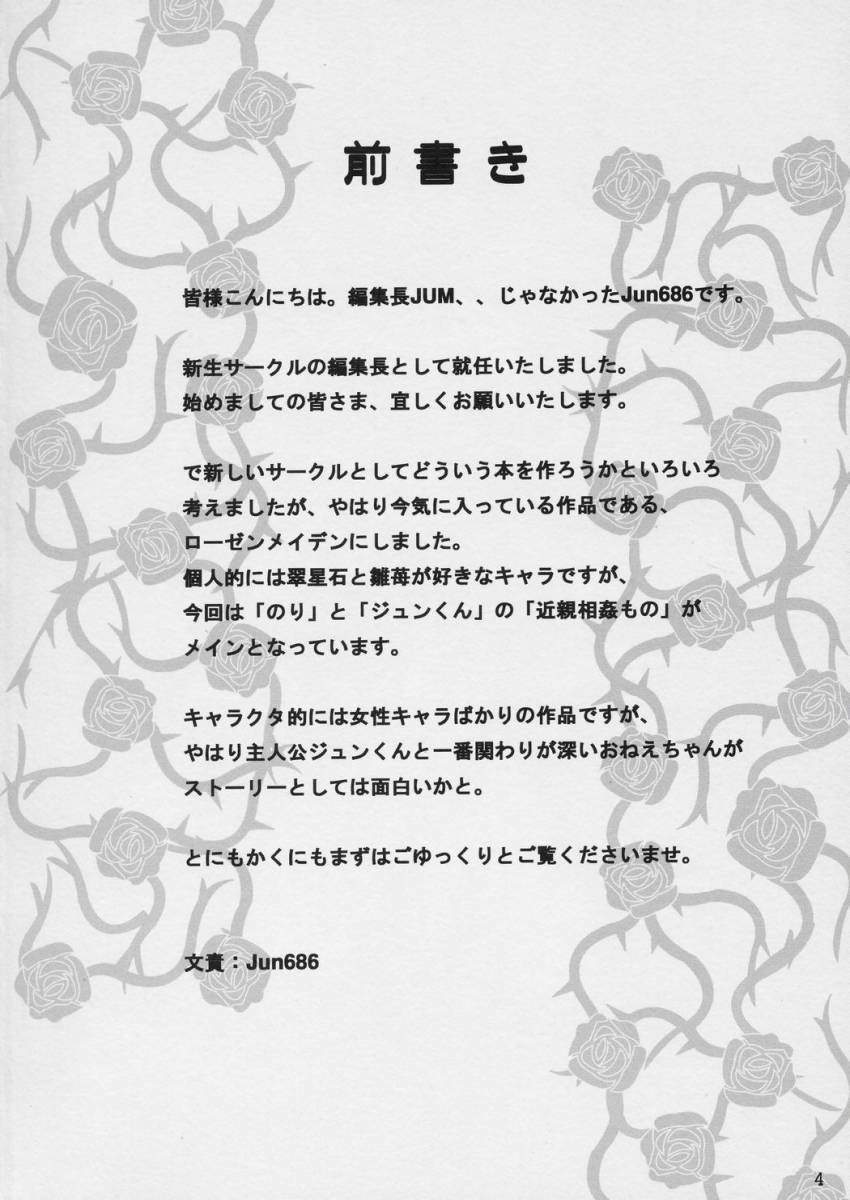 前書き
皆様こんにちは。編集長JUM、、じゃなかったJun686です。
新生サークルの編集長として就任いたしました。
始めましての皆さま、宜しくお願いいたします。
で新しいサークルとしてどういう本を作ろうかといろいろ
考えましたが、やはり今気に入っている作品である、
ローゼンメイデンにしました。
個人的には翠星石と雛苺が好きなキャラですが、
今回は「のり」と「ジュンくん」の「近親相姦もの」が
メインとなっています。
キャラクタ的には女性キャラばかりの作品ですが、
やはり主人公ジュンくんと一番関わりが深いおねえちゃんが
ストーリーとしては面白いかと。
とにもかくにもまずはごゆっくりとご覧くださいませ。
文責：Jun686
4